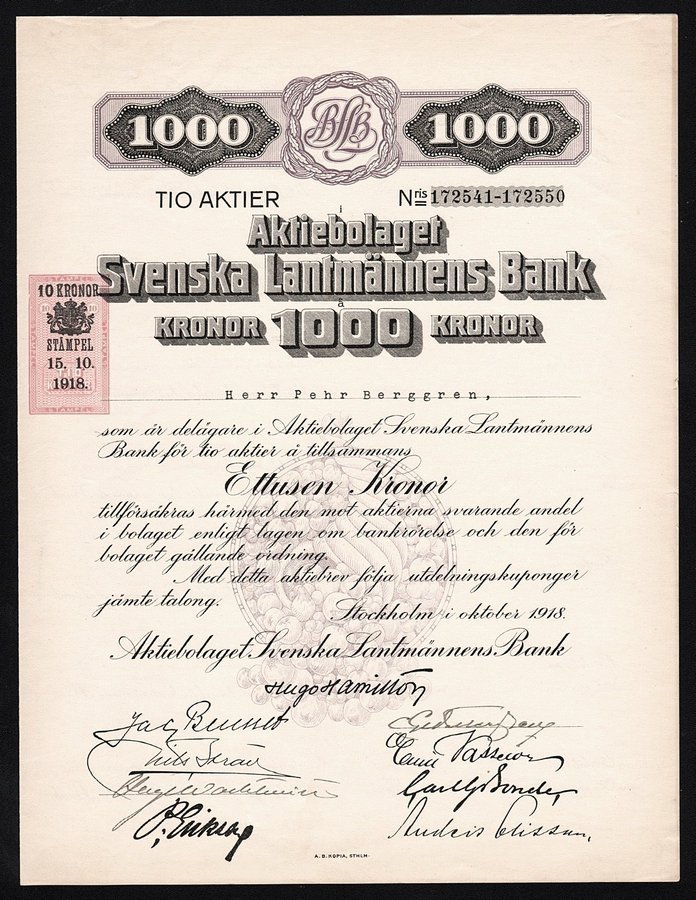 1000 1000
TIO AKTIER Nris 172541-172550
i
Aktiebolaget
Svenska Lantmännens Bank
à
KRONOR 1000 KRONOR
STÄMPEL
10 KRONOR
10 10
STÄMPEL
15. 10.
1918.
STÄMPEL
Herr Pehr Berggren,
som är delägare i Aktiebolaget Svenska Lantmännens
Bank för tio aktier å tillsammans
Ettusen Kronor
tillförsäkras härmed den mot aktierna svarande andel
i bolaget enligt lagen om bankrörelse och den för
bolaget gällande ordning.
Med detta aktiebrev följa utdelningskuponger
jämte talong.
Stockholm i oktober 1918.
Aktiebolaget Svenska Lantmännens Bank
Hugo Hamilton
A. B. KOPIA, STHLM.